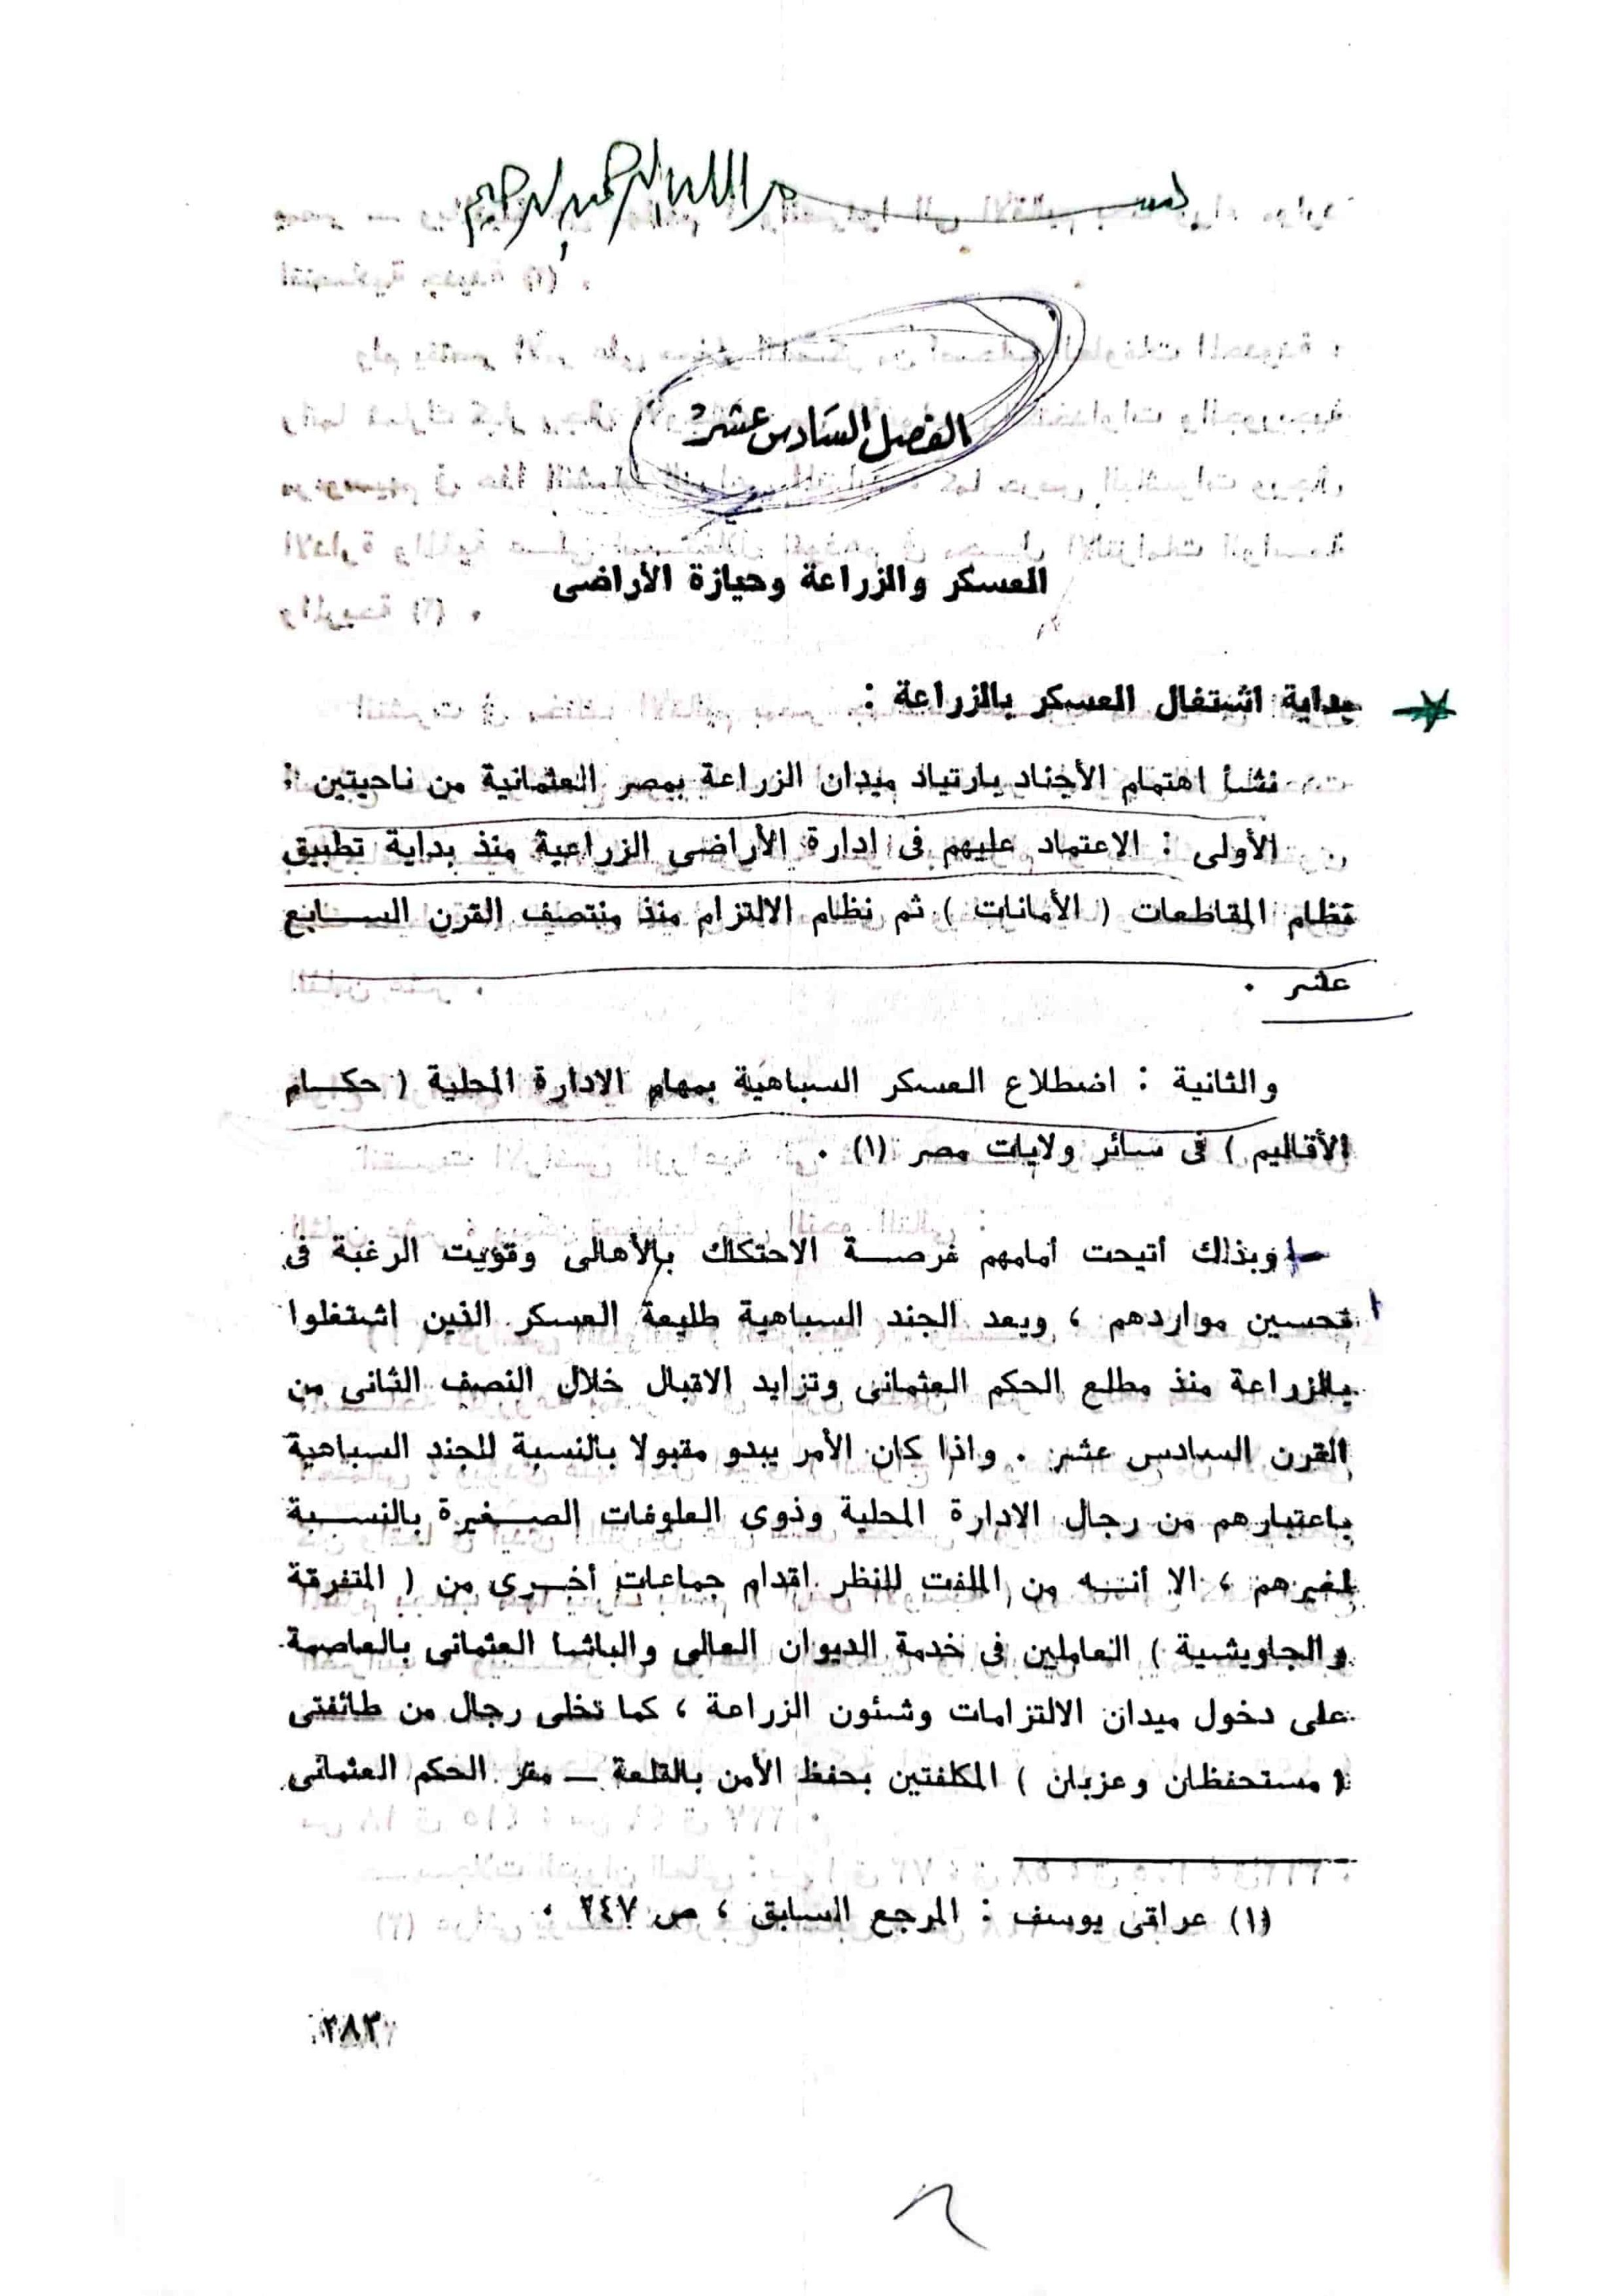 بسم الله الرحمن الرحيم
الفصل السادس عشر
العسكر والزراعة وحيازة الأراضى
بداية اشتغال العسكر بالزراعة :
نشأ اهتمام الأجناد بارتياد ميدان الزراعة بمصر العثمانية من ناحيتين :
الأولى : الاعتماد عليهم فى ادارة الأراضى الزراعية منذ بداية تطبيق
نظام المقاطعات ( الأمانات ) ثم نظام الالتزام منذ منتصف القرن السابع
عشر .
والثانية : اضطلاع العسكر السباهية بمهام الادارة المحلية ( حكام
الأقاليم ) فى سائر ولايات مصر (١) .
وبذلك أتيحت أمامهم فرصة الاحتكاك بالأهالى وقويت الرغبة فى
تحسين مواردهم ، ويعد الجند السباهية طليعة العسكر الذين اشتغلوا
بالزراعة منذ مطلع الحكم العثمانى وتزايد الاقبال خلال النصف الثانى من
القرن السادس عشر . واذا كان الأمر يبدو مقبولا بالنسبة للجند السباهية
باعتبارهم من رجال الادارة المحلية وذوى العلوفات الصغيرة بالنسبة
لغيرهم ، الا أنه من الملفت للنظر اقدام جماعات أخرى من ( المتفرقة
والجاويشية ) العاملين فى خدمة الديوان العالى والباشا العثمانى بالعاصمة
على دخول ميدان الالتزامات وشئون الزراعة ، كما تخلى رجال من طائفتى
( مستحفظان وعزبان ) المكلفتين بحفظ الأمن بالقلعة — مقر الحكم العثمانى
(١) عراقى يوسف : المرجع السابق ، ص ٢٤٧ .
٢٨٣